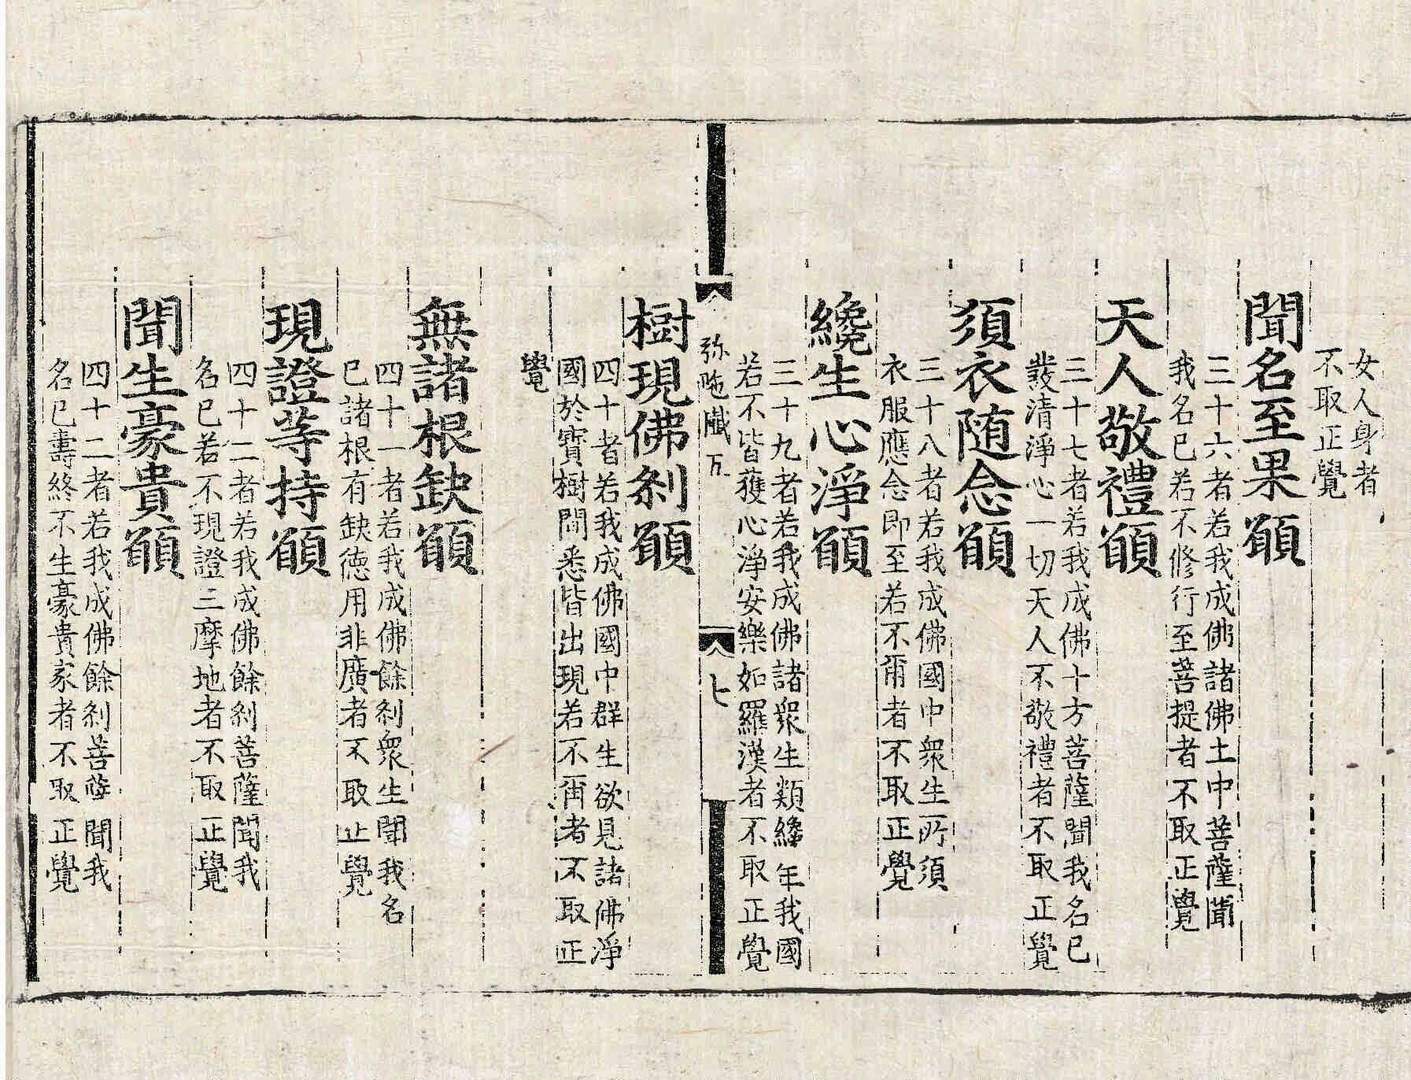 女人身者
不取正覺
聞名至果願
三十六者若我成佛諸佛土中菩薩聞
我名已若不修行至菩提者不取正覺
天人敬禮願
三十七者若我成佛十方菩薩聞我名已
發清淨心一切天人不敬禮者不取正覺
須衣随念願
三十八者若我成佛國中衆生所須
衣服應念即至若不甭者不取正覺
纔生心淨願
三十九者若我成佛諸衆生類纔生我國
若不皆獲心淨安樂如羅漢者不取正覺
弥陁懴 五
七
樹現佛刹願
四十者若我成佛國中群生欲見諸佛淨
國於寳樹間悉皆出現若不甭者不取正
覺
無諸根缺願
四十一者若我成佛餘刹衆生聞我名
已諸根有缺德用非廣者不取正覺
現證等持願
四十二者若我成佛餘刹菩薩聞我
名已若不現證三摩地者不取正覺
聞生豪貴願
四十二者若我成佛餘刹菩薩聞我
名已壽終不生豪貴家者不取正覺